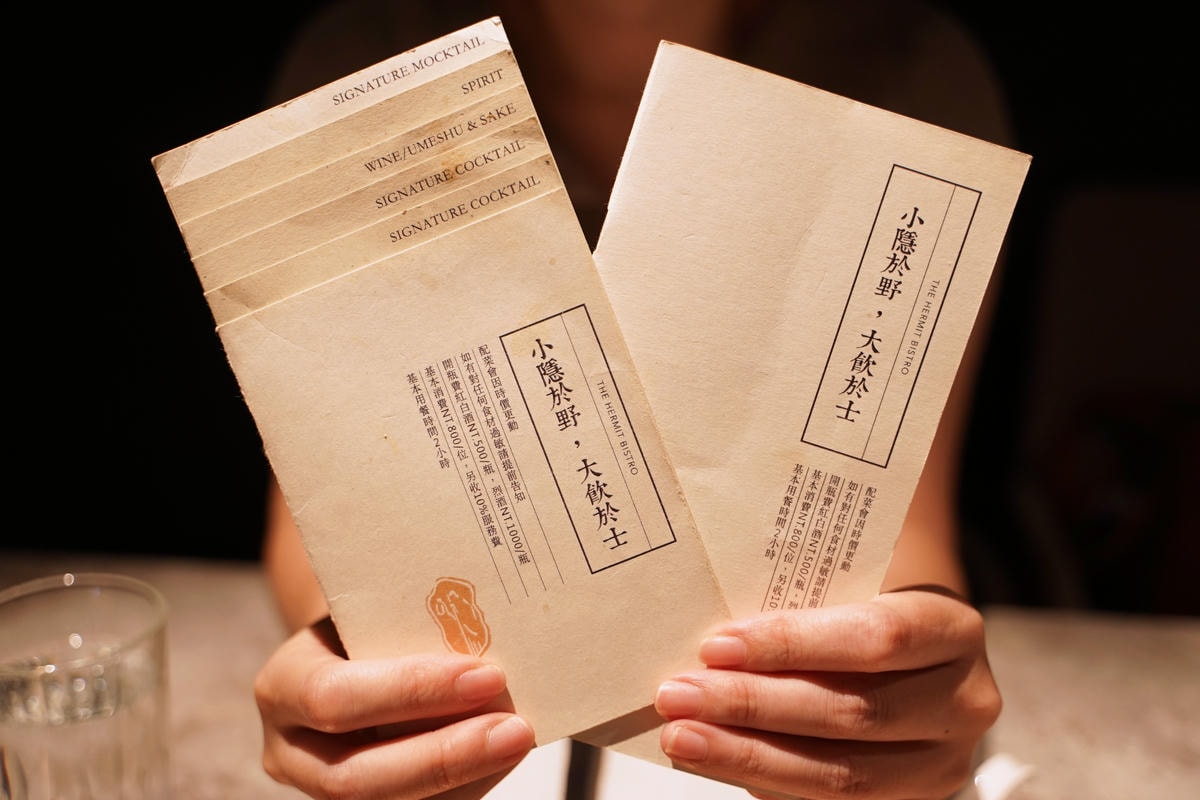 SIGNATURE MOCKTAIL
SPIRIT
WINE/UMESHU & SAKE
SIGNATURE COCKTAIL
SIGNATURE COCKTAIL
小隱於野，大飲於士
THE HERMIT BISTRO
配菜會因時價更動
如有對任何食材過敏請提前告知
開瓶費紅白酒NT500/瓶，烈酒NT1000/瓶
基本消費NT800/位，另收10%服務費
基本用餐時間2小時
小隱於野，大飲於士
THE HERMIT BISTRO
配菜會因時價更動
如有對任何食材過敏請提前
開瓶費紅白酒NT500/瓶，烈
基本消費NT800/位，另收10
基本用餐時間2小時